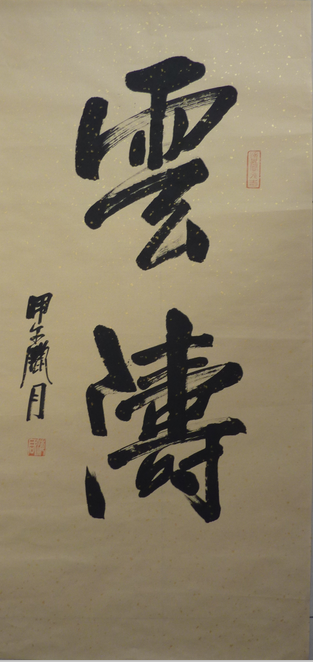 雲濤
甲午蘭月